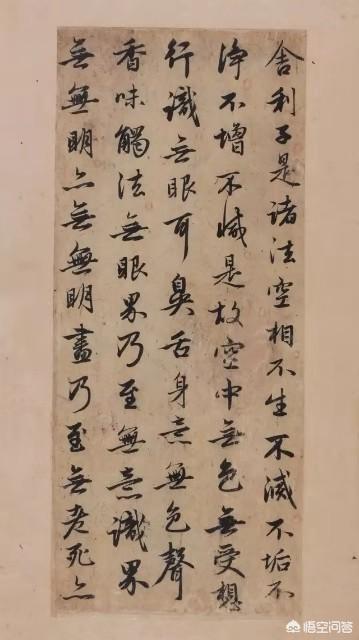 舍利子是诸法空相不生不滅不垢不
淨不增不減是故空中無色無受想
行識无眼耳鼻舌身意無色聲
香味觸法無眼界乃至無意識界
無無明亦無無明盡乃至無老死亦
悟空问答